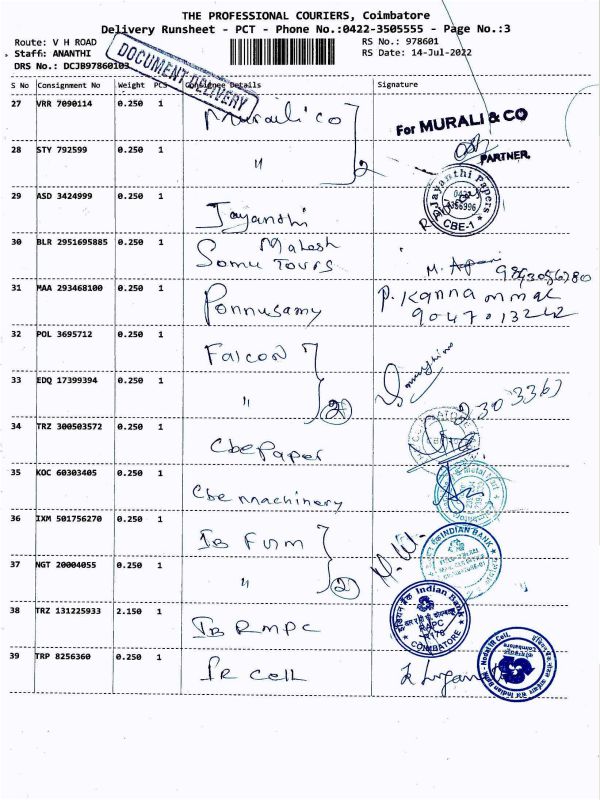 THE PROFESSIONAL COURIERS, Coimbatore
Delivery Runsheet - PCT - Phone No.:0422-3505555 - Page No.:3
Route: V H ROAD RS No.: 978601
Staff: ANANTHI RS Date: 14-Jul-2022
DRS No.: DCJB97860103
DOCUMENT DELIVERY
S No Consignment No Weight PCS Consignee Details Signature
27 VRR 7090114 0.250 1 Murali co
For MURALI & CO
28 STY 792599 0.250 1 " 2
PARTNER.
29 ASD 3424999 0.250 1 Jayandhi
Jayanthi Papers
CBE-1
30 BLR 2951695885 0.250 1 Mahesh
Somu Tours M.
31 MAA 293468100 0.250 1 Ponnusamy P. Kannammal
9047013242
32 POL 3695712 0.250 1 Falcon
33 EDQ 17399394 0.250 1 " 2
2303367
34 TRZ 300503572 0.250 1 Cbe Paper
35 KOC 60303405 0.250 1 Cbe machinery
36 IXM 501756270 0.250 1 IB Firm
INDIAN BANK
37 NGT 20004055 0.250 1 " 2
38 TRZ 131225933 2.150 1 IB RMPC
इंडियन बैंक Indian Bank
RAPC
R178
COIMBATORE
39 TRP 8256360 0.250 1 IR Cell
Indian Bank - Nodal IR Cell,